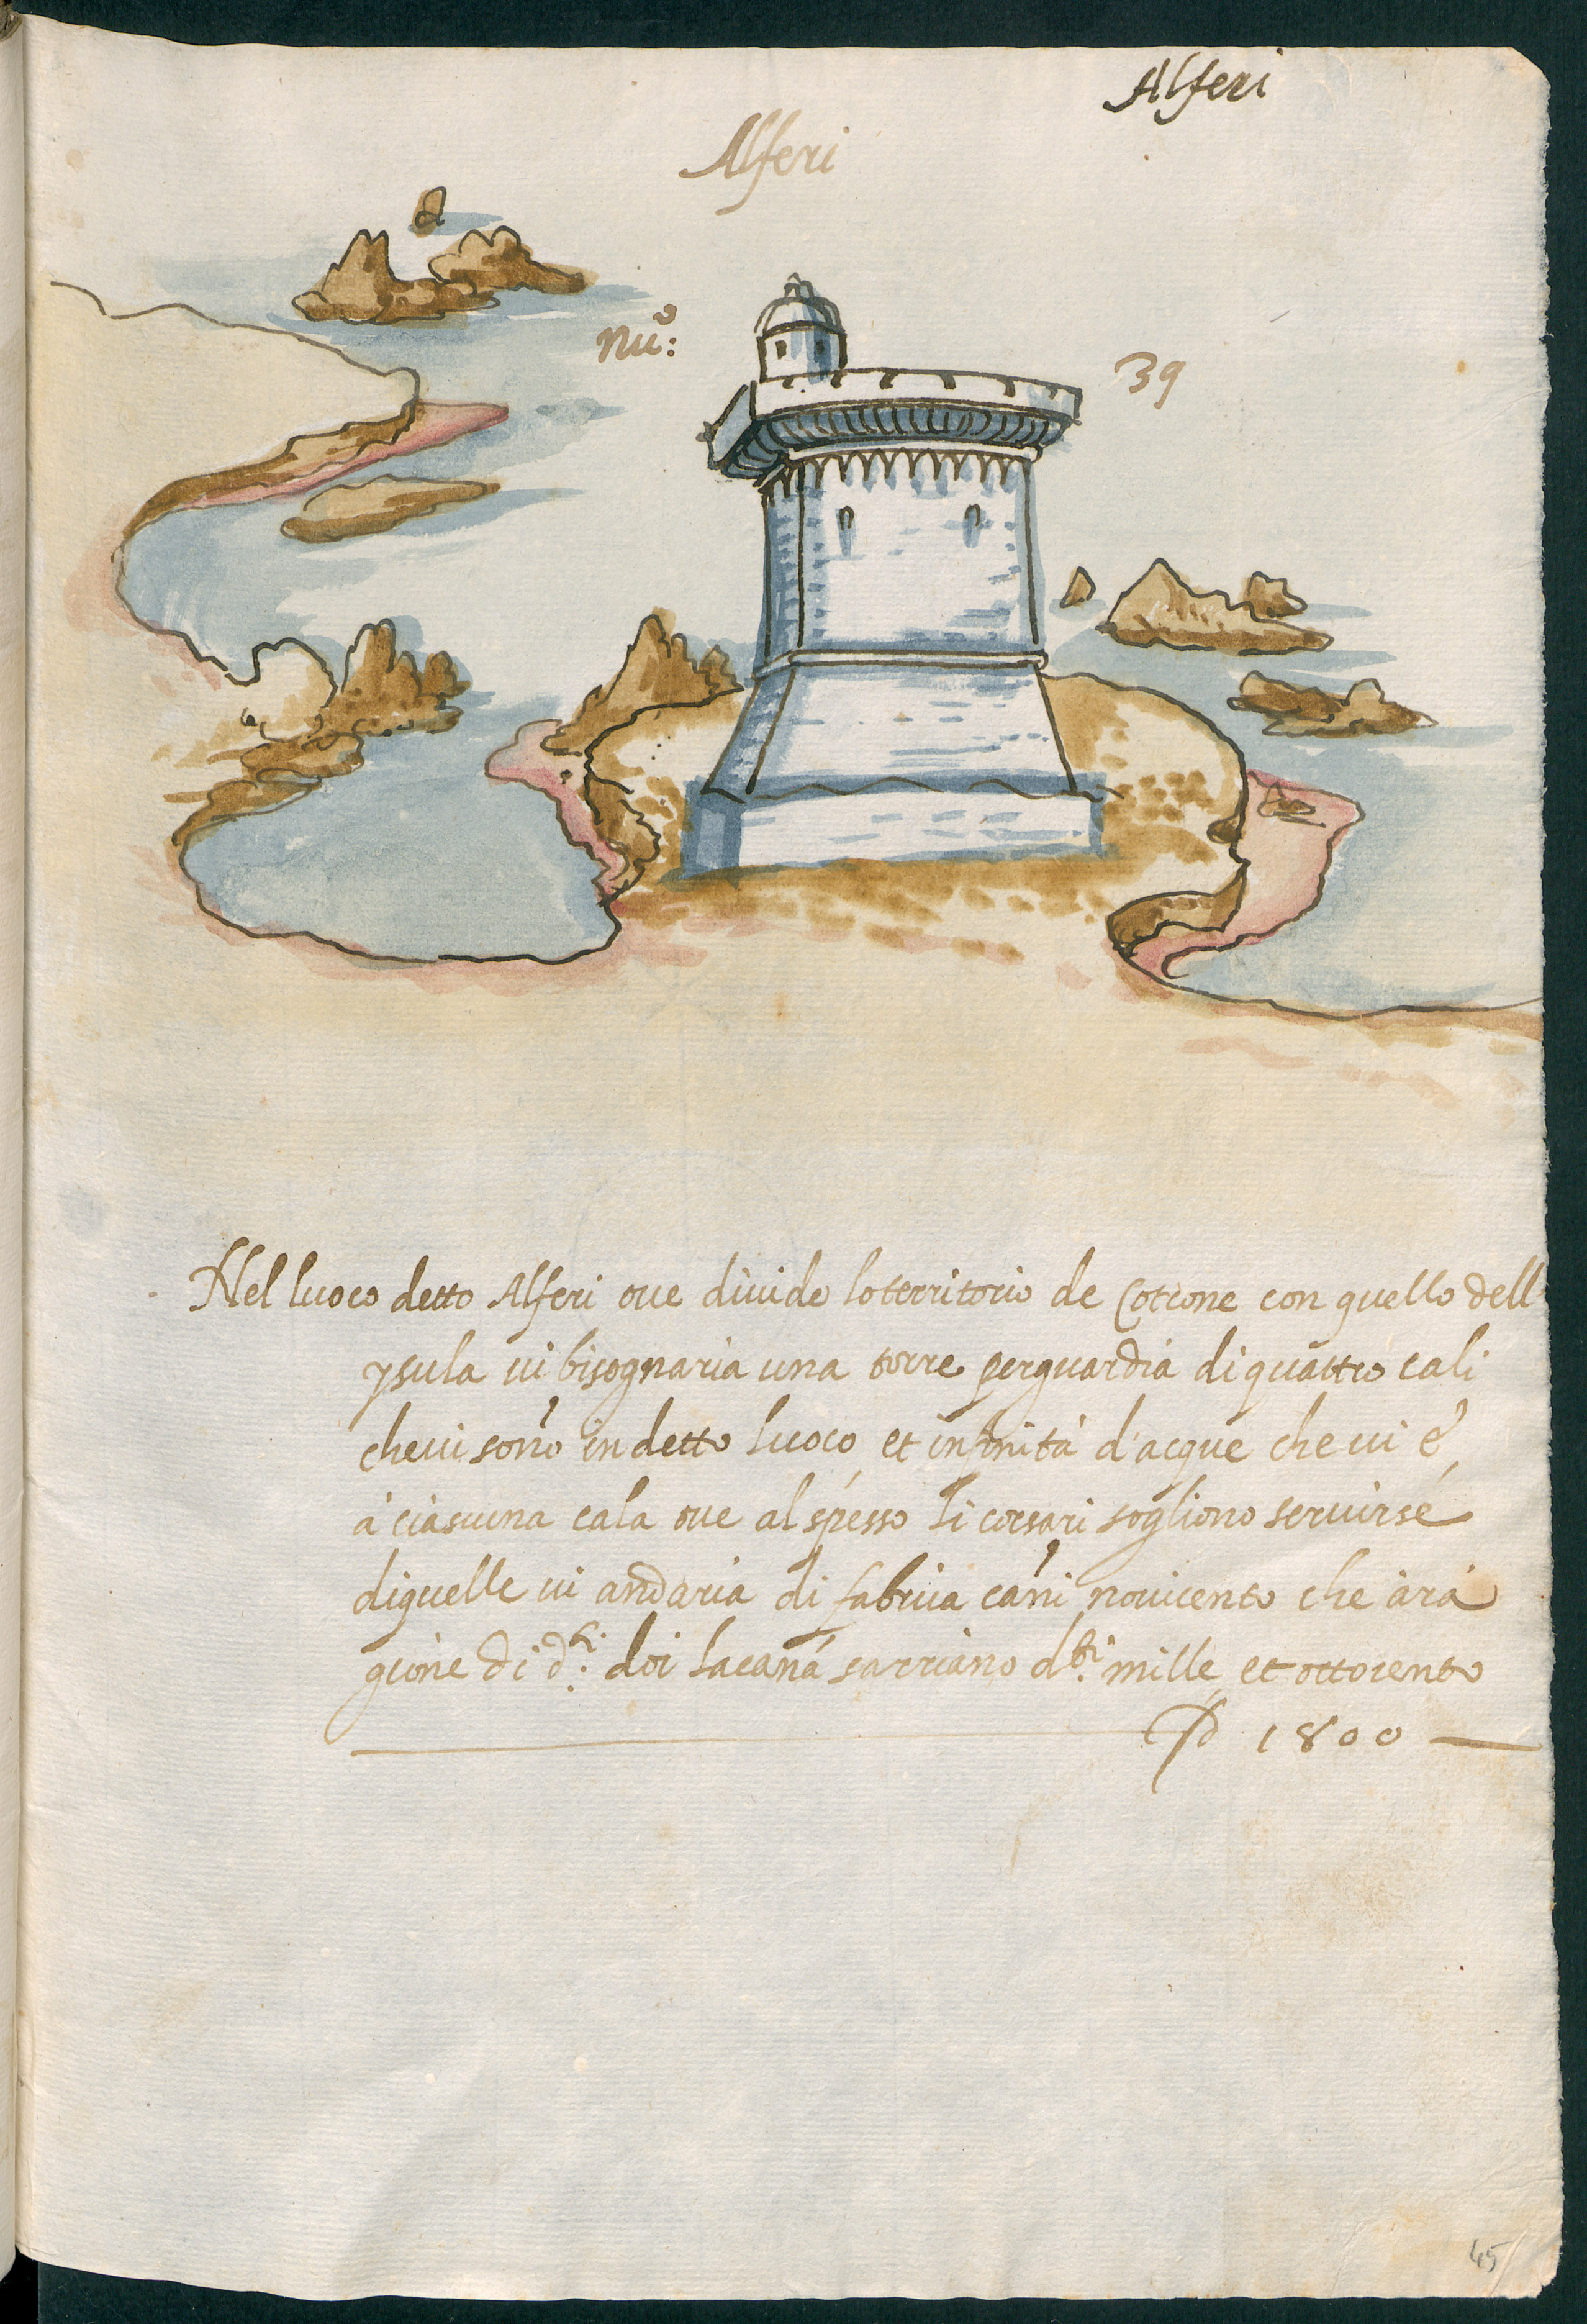 Alferi
Alferi
nu°: 39
Nel luoco detto Alferi oue diuide lo territorio de Cotrone con quello dell
ysula ui bisognaria una torre per guardia di quattro cali
che ui sono in detto luoco et infinità d'acque che ui è
à ciascuna cala oue al spesso li corsari sogliono seruirse
di quelle ui andaria di fabrica canni nouicento che àrà
gione di d.ti doi la cana sarriano d.ti mille et ottocento
D 1800
45